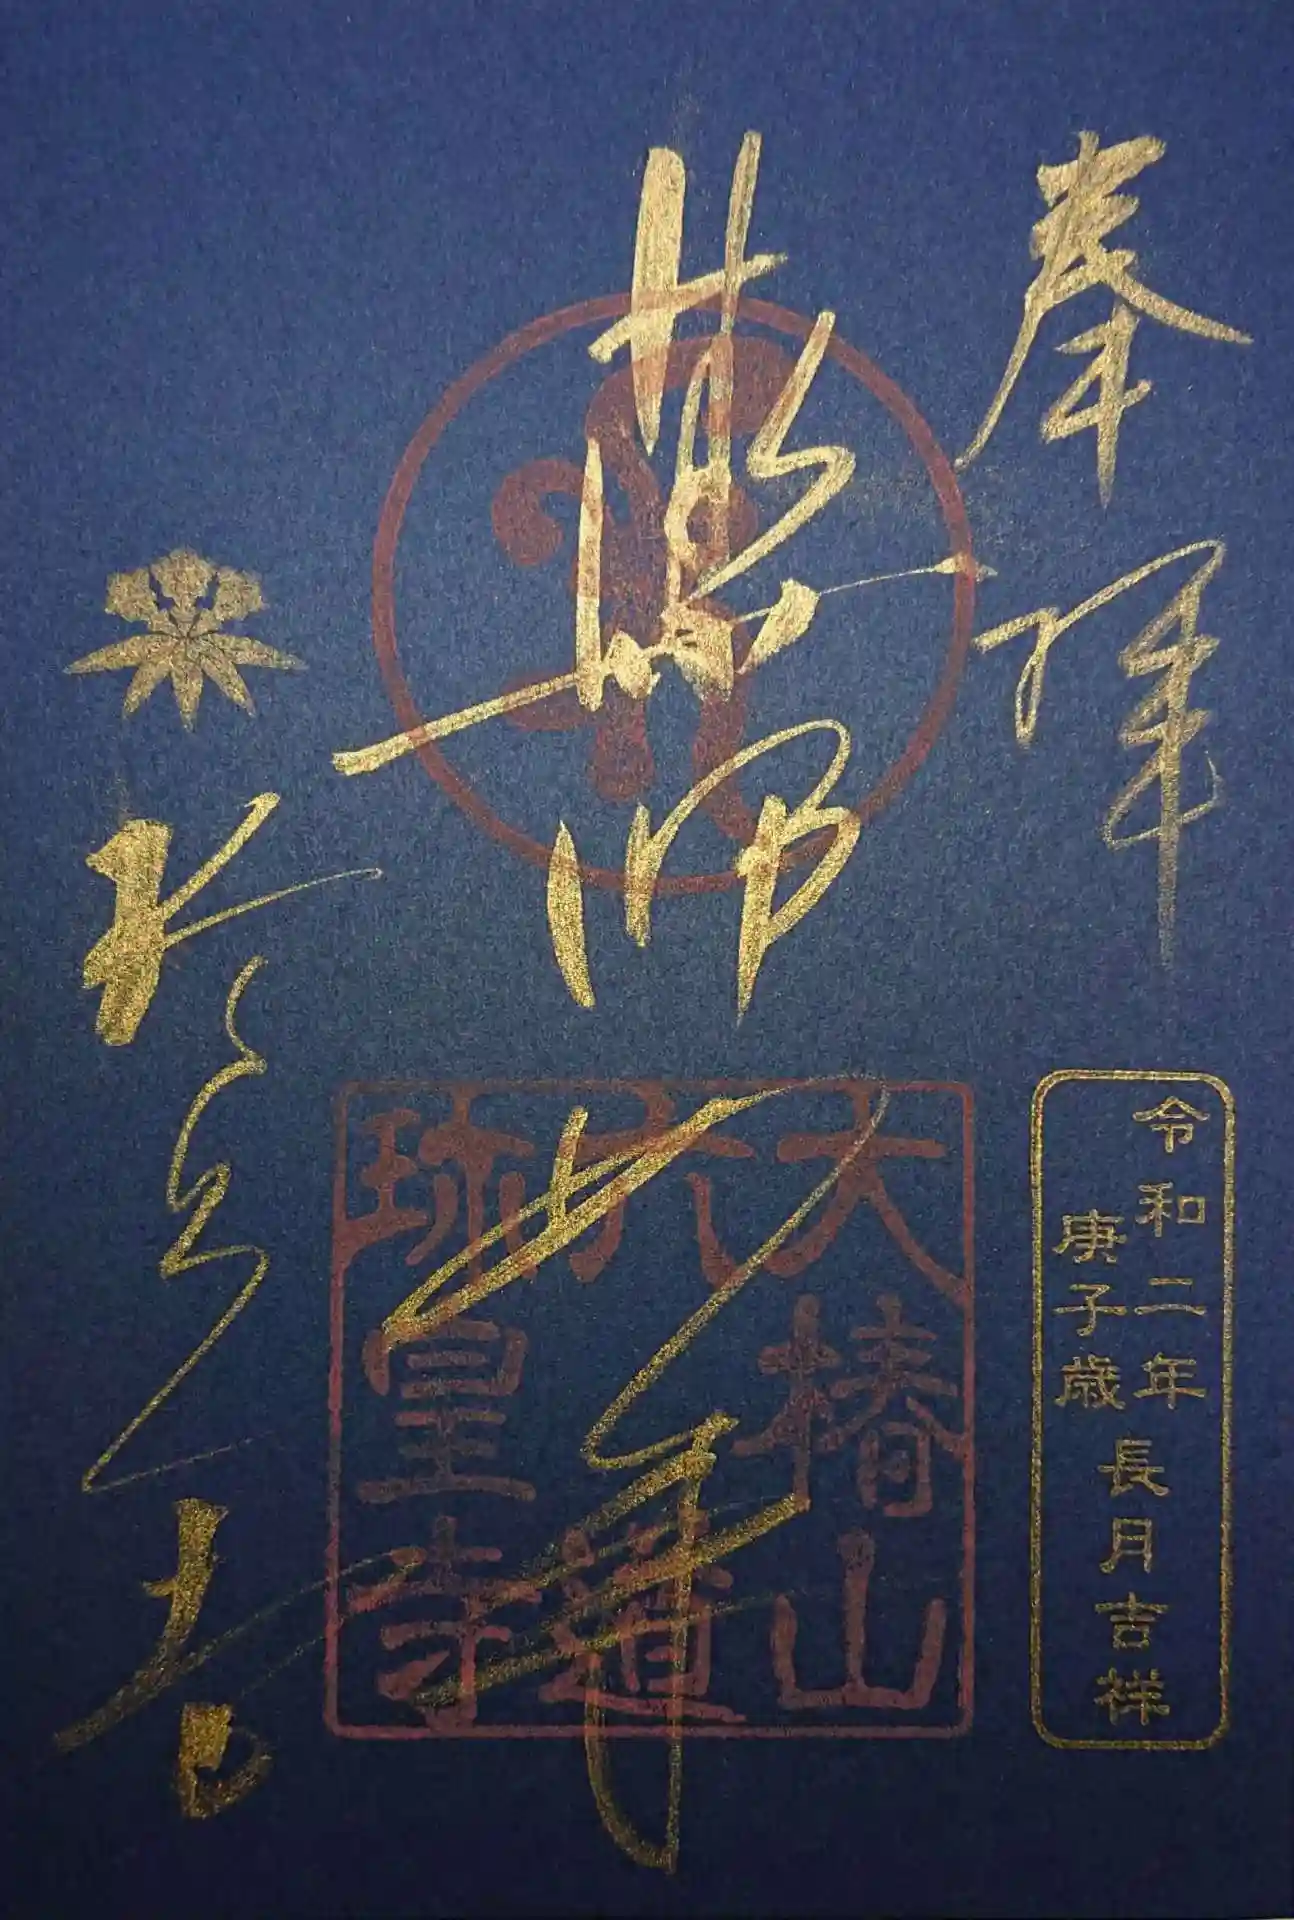 奉拝
令和二年
庚子歳
長月吉祥
薬師如来
大椿山
六道
珍皇寺